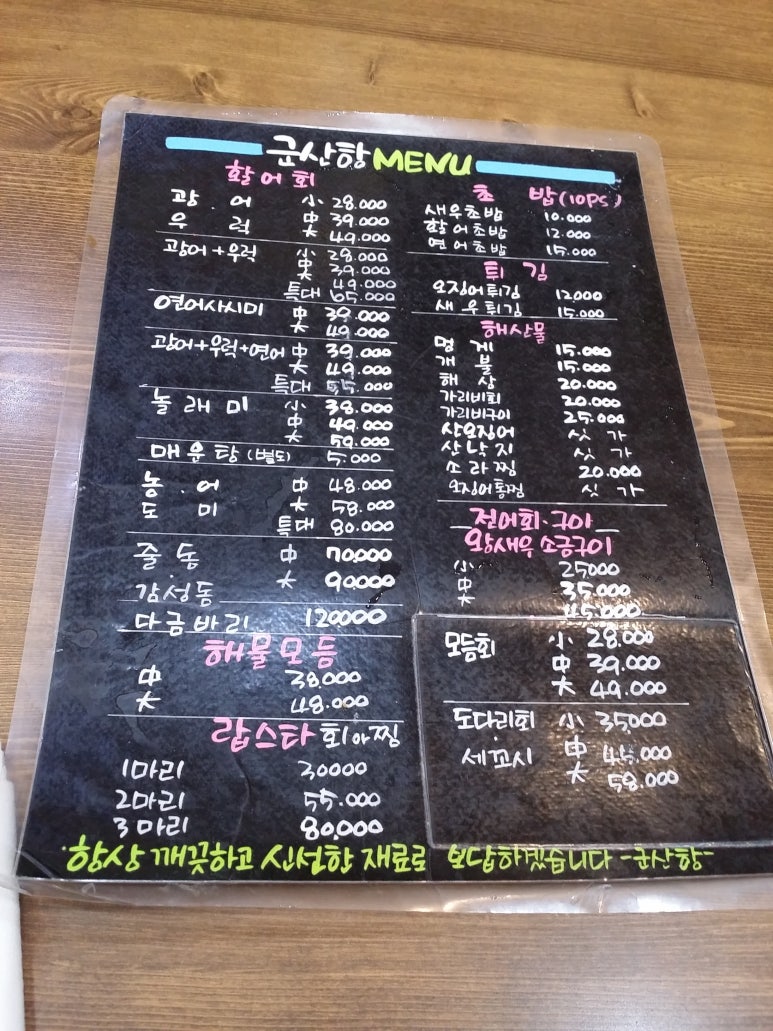 군산항 MENU
활어회
광.어 小 28.000
우럭 中 39.000
大 49.000
광어+우럭 小 28.000
中 39.000
大 49.000
특대 65.000
연어사시미 中 39.000
大 49.000
광어+우럭+연어 中 39.000
大 49.000
특대 55.000
놀래미 小 38.000
中 49.000
大 59.000
매운탕 (별도) 5.000
농.어 中 48.000
도미 大 58.000
특대 80.000
줄돔 中 70.000
감성돔 大 90.000
다금바리 120000
해물모듬
中 38.000
大 48.000
랍스타 회아찜
1마리 30000
2마리 55.000
3마리 80.000
초밥(10PS)
새우초밥 10.000
활어초밥 12.000
연어초밥 15.000
튀김
오징어튀김 12.000
새우튀김 15.000
해산물
멍게 15.000
개불 15.000
해삼 20.000
가리비회 20.000
가리비구이 25.000
산오징어 싯가
산낙지 싯가
소라찜 20.000
오징어통찜 싯가
전어회.구이
왕새우 소금구이
小 25000
中 35.000
大 45.000
모듬회 小 28.000
中 39.000
大 49.000
도다리회 小 35,000
세꼬시 中 45.000
大 58.000
.항상 깨끗하고 신선한 재료로 보답하겠습니다 -군산항-